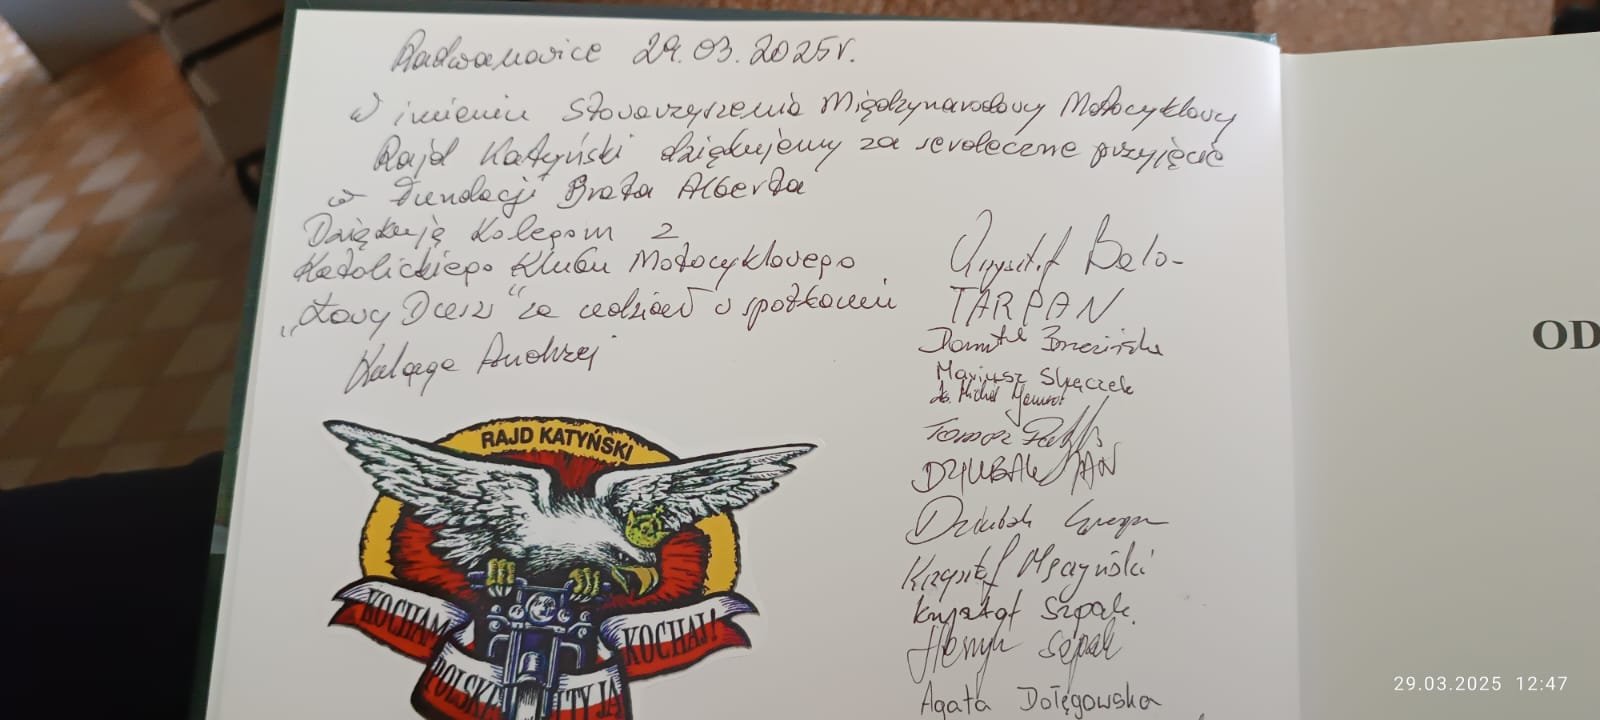 Radwanowice 29.03.2025r.
W imieniu Stowarzyszenia Międzynarodowy Motocyklowy
Rajd Katyński dziękujemy za serdeczne przyjęcie
w Fundacji Brata Alberta
Dziękuję Kolegom z
Katolickiego Klubu Motocyklowego
„Zawy Duszu“ za udział w spotkaniu
Andrzej
Krzysztof Belo-
TARPAN
Mariusz
ks. Michał
Tomasz
DZIUBAK JAN
Dziubak
Krzysztof
Krzysztof Szpak.
Henryk Szpak
Agata Dołęgowska
RAJD KATYŃSKI
KOCHAM
POLSKĘ
I TY JĄ
KOCHAJ!
OD
29.03.2025 12:47